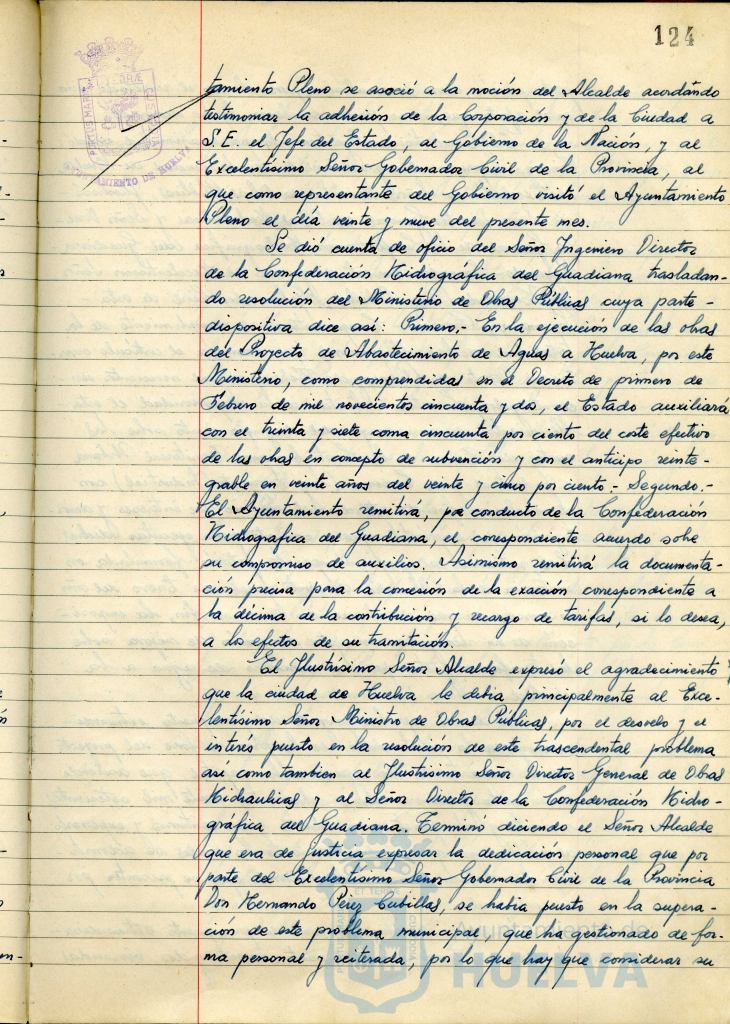 124
tamiento Pleno se asoció a la noción del Alcalde acordando
testimoniar la adhesión de la Corporación y de la Ciudad a
S.E. el Jefe del Estado, al Gobierno de la Nación, y al
Excelentísimo Señor Gobernador Civil de la Provincia, al
que como representante del Gobierno visitó el Ayuntamiento
Pleno el día veinte y nueve del presente mes.
Se dió cuenta de oficio del Señor Ingeniero Director
de la Confederación Hidrográfica del Guadiana trasladan-
do resolución del Ministerio de Obras Públicas cuya parte -
dispositiva dice así: Primero.- En la ejecución de las obras
del Proyecto de Abastecimiento de Aguas a Huelva, por este
Ministerio, como comprendidas en el Decreto de primero de
Febrero de mil novecientos cincuenta y dos, el Estado auxiliará
con el treinta y siete coma cincuenta por ciento del coste efectivo
de las obras en concepto de subvención y con el anticipo reinte-
grable en veinte años del veinte y cinco por ciento.- Segundo.-
El Ayuntamiento remitirá, por conducto de la Confederación
Hidrografica del Guadiana, el correspondiente acuerdo sobre
su compromiso de auxilios. Asimismo remitirá la documenta-
ción precisa para la concesión de la exacción correspondiente a
la décima de la contribución y recargo de tarifas, si lo desea,
a los efectos de su tramitación.
El Ilustrísimo Señor Alcalde expresó el agradecimiento
que la ciudad de Huelva le debia principalmente al Exce-
lentísimo Señor Ministro de Obras Públicas, por el desvelo y el
interés puesto en la resolución de este trascendental problema
así como tambien al Ilustrisimo Señor Director General de Obras
Hidraulicas y al Señor Director de la Confederación Hidro-
gráfica del Guadiana. Terminó diciendo el Señor Alcalde
que era de justicia expresar la dedicación personal que por
parte del Excelentísimo Señor Gobernador Civil de la Provincia
Don Hernando Pérez Cubillas, se habia puesto en la supera-
ción de este problema municipal, que ha gestionado de for-
ma personal y reiterada, por lo que hay que considerar su
AYUNTAMIENTO DE HUELVA
Ayuntamiento de
HUELVA